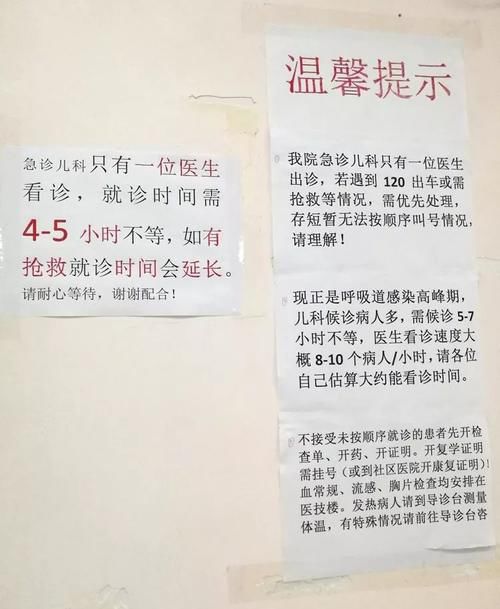 急诊儿科只有一位医生
看诊，就诊时间需
4-5 小时不等，如有
抢救就诊时间会延长。
请耐心等待，谢谢配合！
温馨提示
我院急诊儿科只有一位医生
出诊，若遇到 120 出车或需
抢救等情况，需优先处理，
存短暂无法按顺序叫号情况，
请理解！
现正是呼吸道感染高峰期，
儿科候诊病人多，需候诊 5-7
小时不等，医生看诊速度大
概 8-10 个病人/小时，请各位
自己估算大约能看诊时间。
不接受未按顺序就诊的患者先开检
查单、开药、开证明。开复学证明
需挂号（或到社区医院开康复证明）！
血常规、流感、胸片检查均安排在
医技楼。发热病人请到导诊台测量
体温，有特殊情况请前往导诊台咨